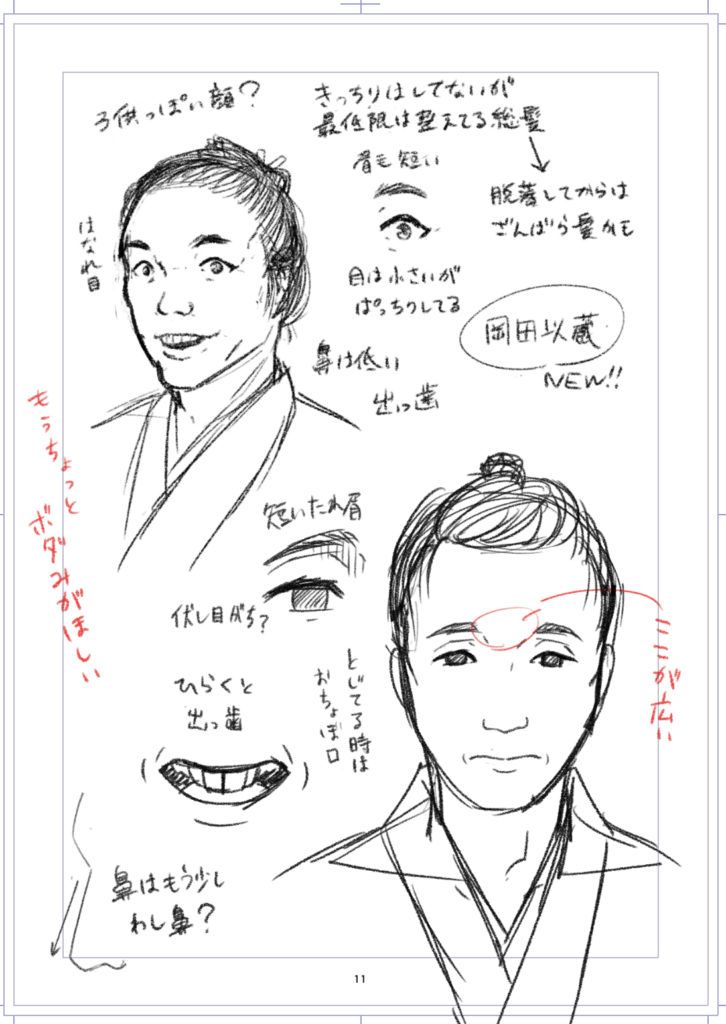 子供っぽい顔?
きっちりはしてないが
最低限は整えてる総髪
脱落してからは
ざんばら髪かも
眉も短い
目は小さいが
ぱっちりしてる
はなれ目
鼻は低い
出っ歯
岡田以蔵
NEW!!
もうちょっと
ボダみがほしい
短いたれ眉
伏し目がち?
ここが広い
ひらくと
出っ歯
とじてる時は
おちょぼ口
鼻はもう少し
わし鼻?
11